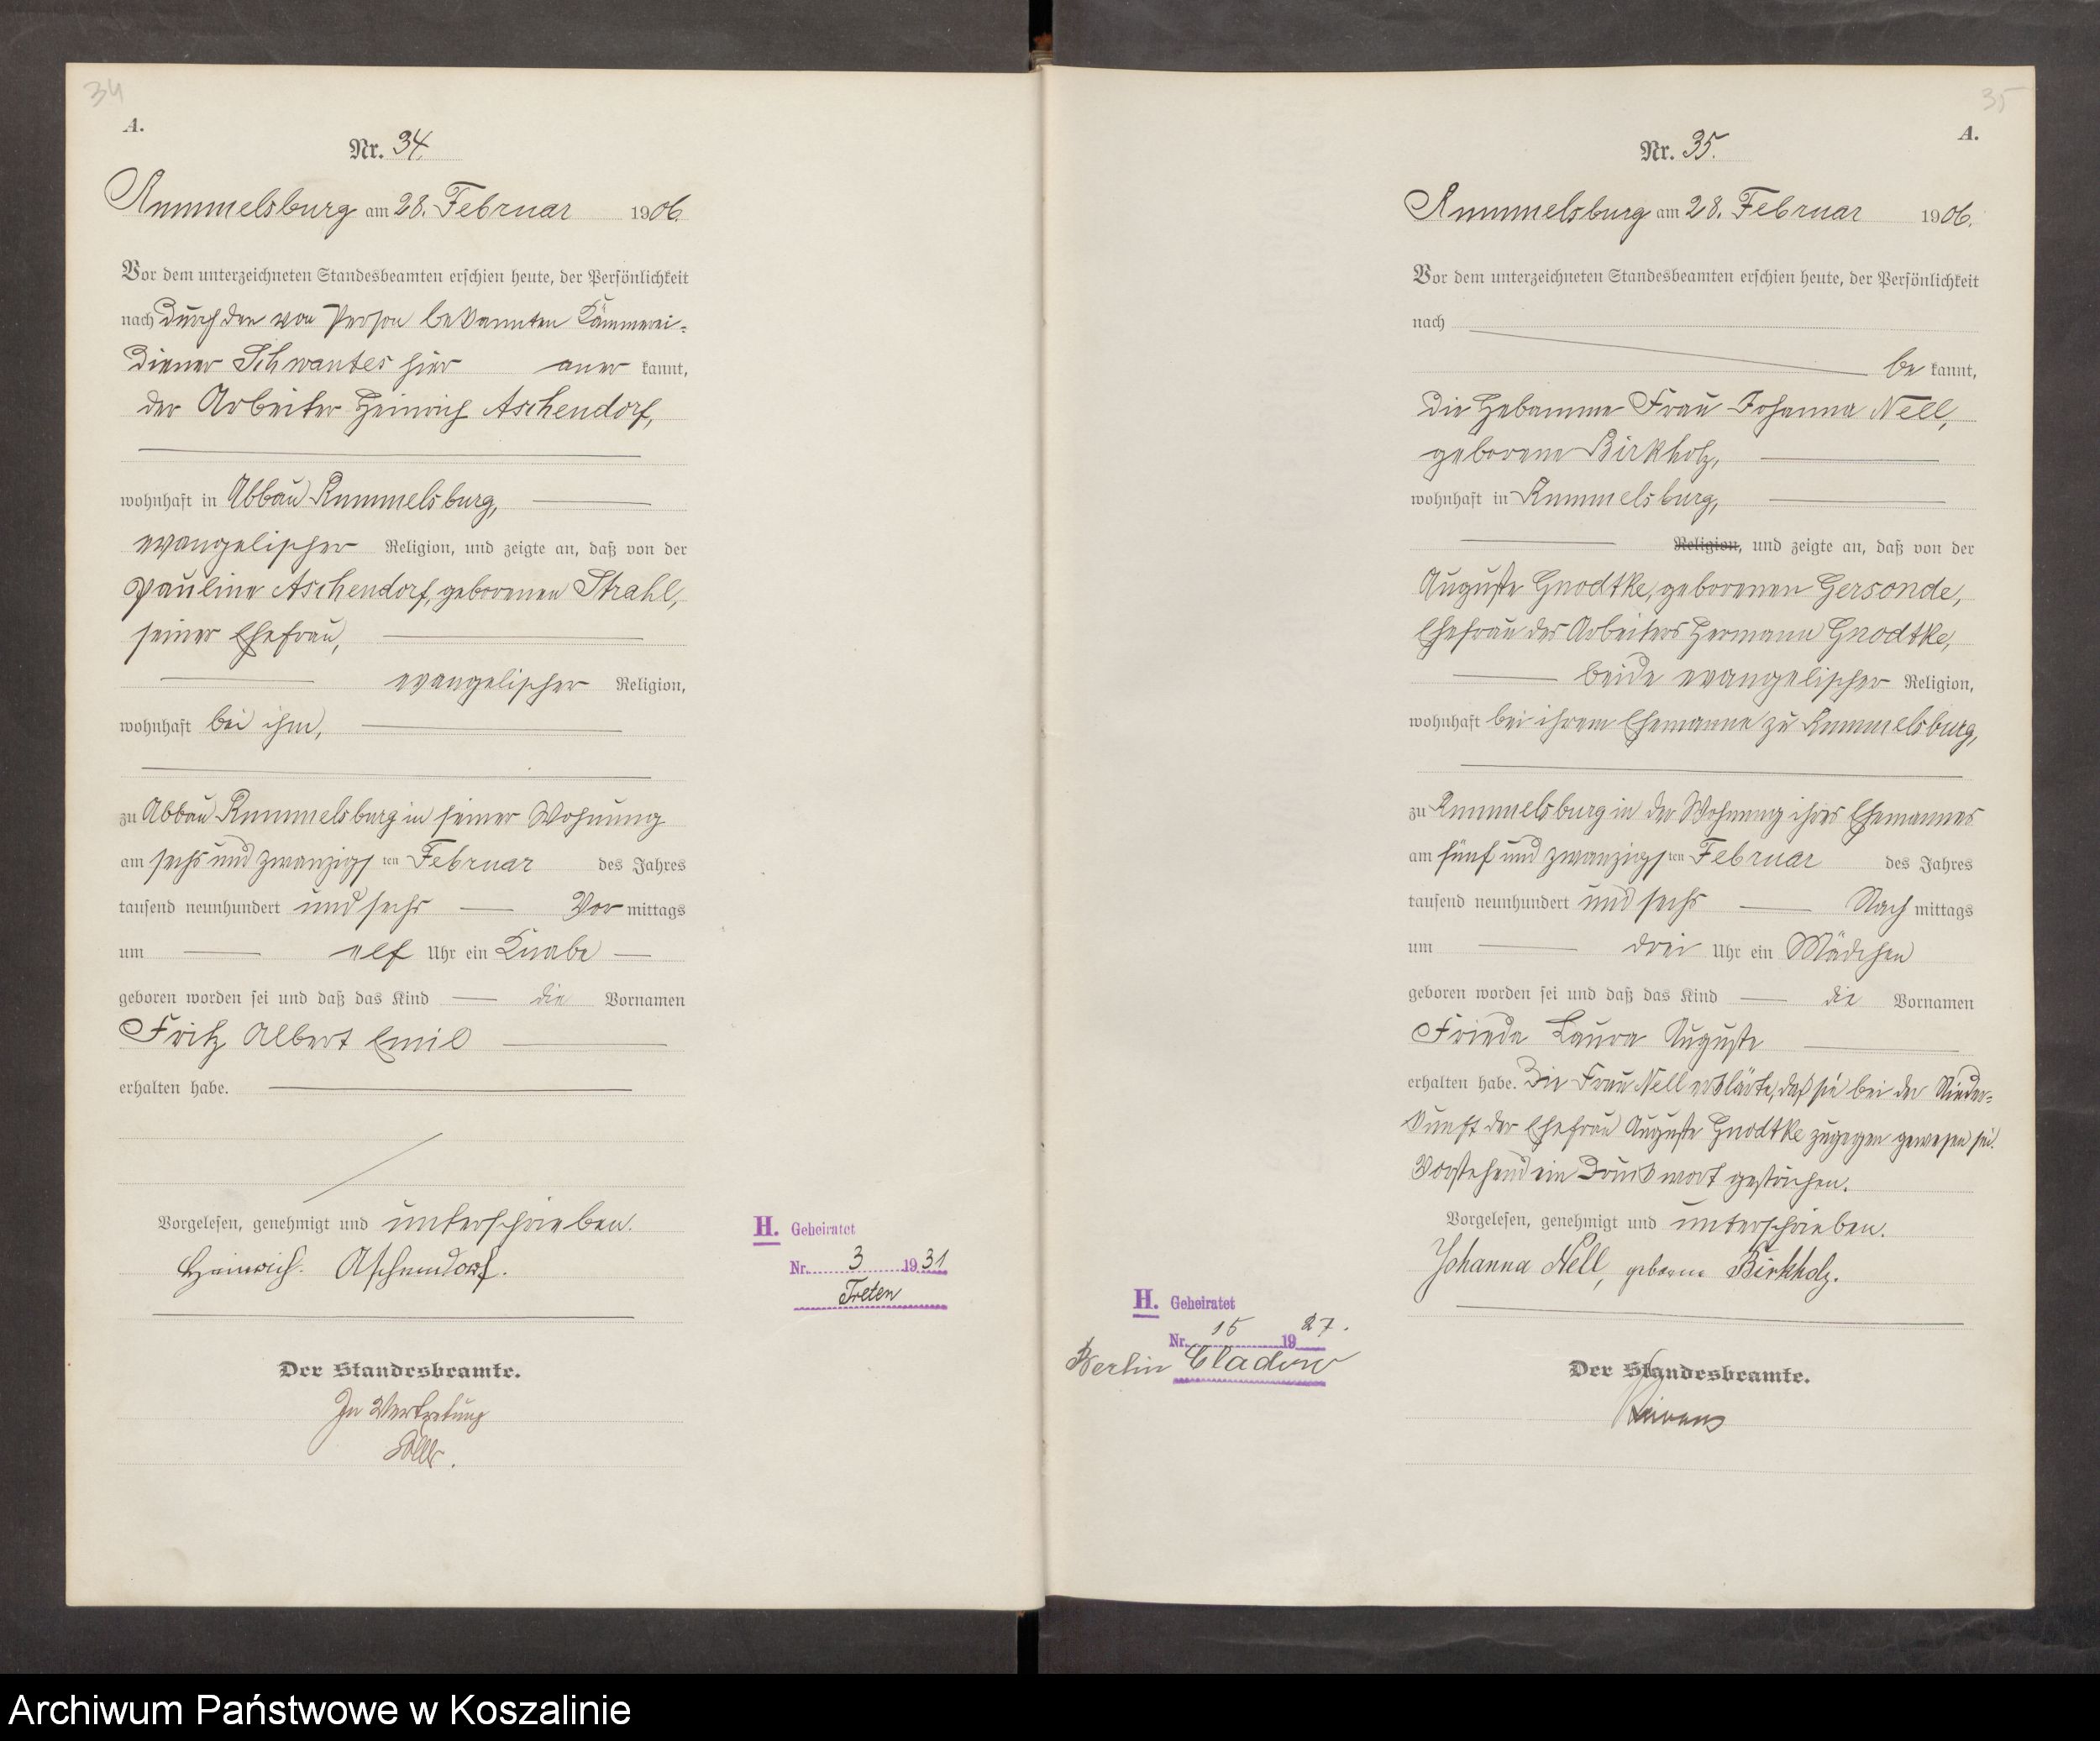 34
A.
Nr. 34.
Rummelsburg am 28. Februar 1906.
Vor dem unterzeichneten Standesbeamten erschien heute, der Persönlichkeit
nach durch den von Person bekannten Kämmerei-
diener Schwantes hier aner kannt,
der Arbeiter Heinrich Aschendorf,
wohnhaft in Abbau Rummelsburg,
evangelischer Religion, und zeigte an, daß von der
Pauline Aschendorf, geborenen Strahl,
seiner Ehefrau,
evangelischer Religion,
wohnhaft bei ihm,
zu Abbau Rummelsburg in seiner Wohnung
am sechs und zwanzigsten Februar des Jahres
tausend neunhundert und sechs Vor mittags
um elf Uhr ein Knabe
geboren worden sei und daß das Kind die Vornamen
Fritz Albert Emil
erhalten habe.
Vorgelesen, genehmigt und unterschrieben.
Heinrich Aschendorf.
Der Standesbeamte.
In Vertretung
H. Geheiratet
Nr. 3 1931
Treten
35
A.
Nr. 35.
Rummelsburg am 28. Februar 1906.
Vor dem unterzeichneten Standesbeamten erschien heute, der Persönlichkeit
nach
be kannt,
die Hebamme Frau Johanna Nell,
geborene Birkholz,
wohnhaft in Rummelsburg,
Religion, und zeigte an, daß von der
Auguste Gnodtke, geborenen Gersonde,
Ehefrau des Arbeiters Hermann Gnodtke,
beide evangelischer Religion,
wohnhaft bei ihrem Ehemanne zu Rummelsburg,
zu Rummelsburg in der Wohnung ihres Ehemannes
am fünf und zwanzigsten Februar des Jahres
tausend neunhundert und sechs Nach mittags
um drei Uhr ein Mädchen
geboren worden sei und daß das Kind die Vornamen
Frieda Laura Auguste
erhalten habe. Die Frau Nell erklärte, daß sie bei der Nieder-
kunft der Ehefrau Auguste Gnodtke zugegen gewesen sei.
Vorstehend ein Druckwort gestrichen.
Vorgelesen, genehmigt und unterschrieben.
Johanna Nell, geborene Birkholz.
Der Standesbeamte.
H. Geheiratet
Nr. 15 1927.
Berlin Cladow
Archiwum Państwowe w Koszalinie